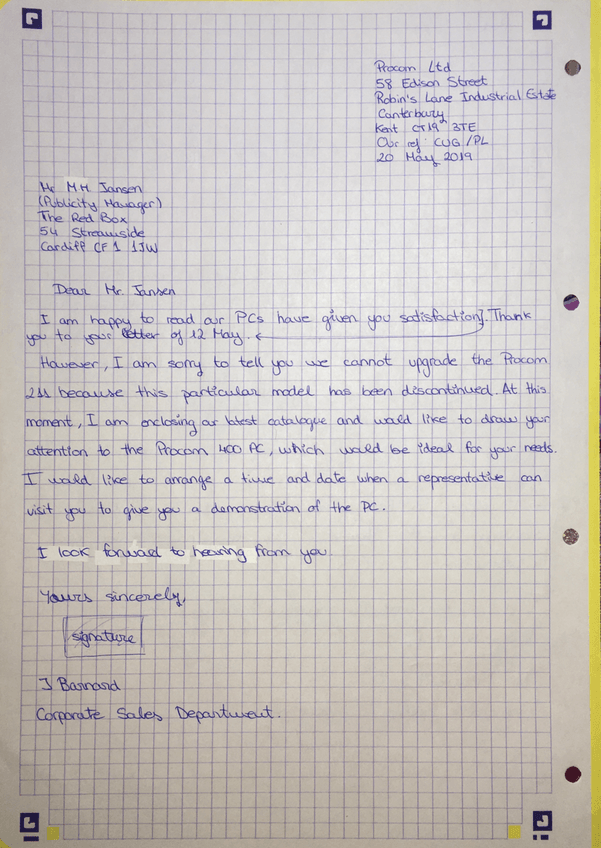 Procom Ltd
58 Edison Street
Robin's Lane Industrial Estate
Canterbury
Kent CT19 3TE
Our ref: CUG/PL
20 May 2019
Mr MH Jansen
(Publicity Manager)
The Red Box
54 Streamside
Cardiff CF1 1JW
Dear Mr. Jansen
I am happy to read our PCs have given you satisfaction]. Thank
you to your letter of 12 May.
However, I am sorry to tell you we cannot upgrade the Procom
because this particular model has been discontinued. At this
moment, I am enclosing our latest catalogue and would like to draw your
attention to the Procom 400 PC, which would be ideal for your needs.
I would like to arrange a time and date when a representative can
visit you to give you a demonstration of the PC.
I look forward to hearing from you
Yours sincerely,
signature
J Barnard
Corporate Sales Department.